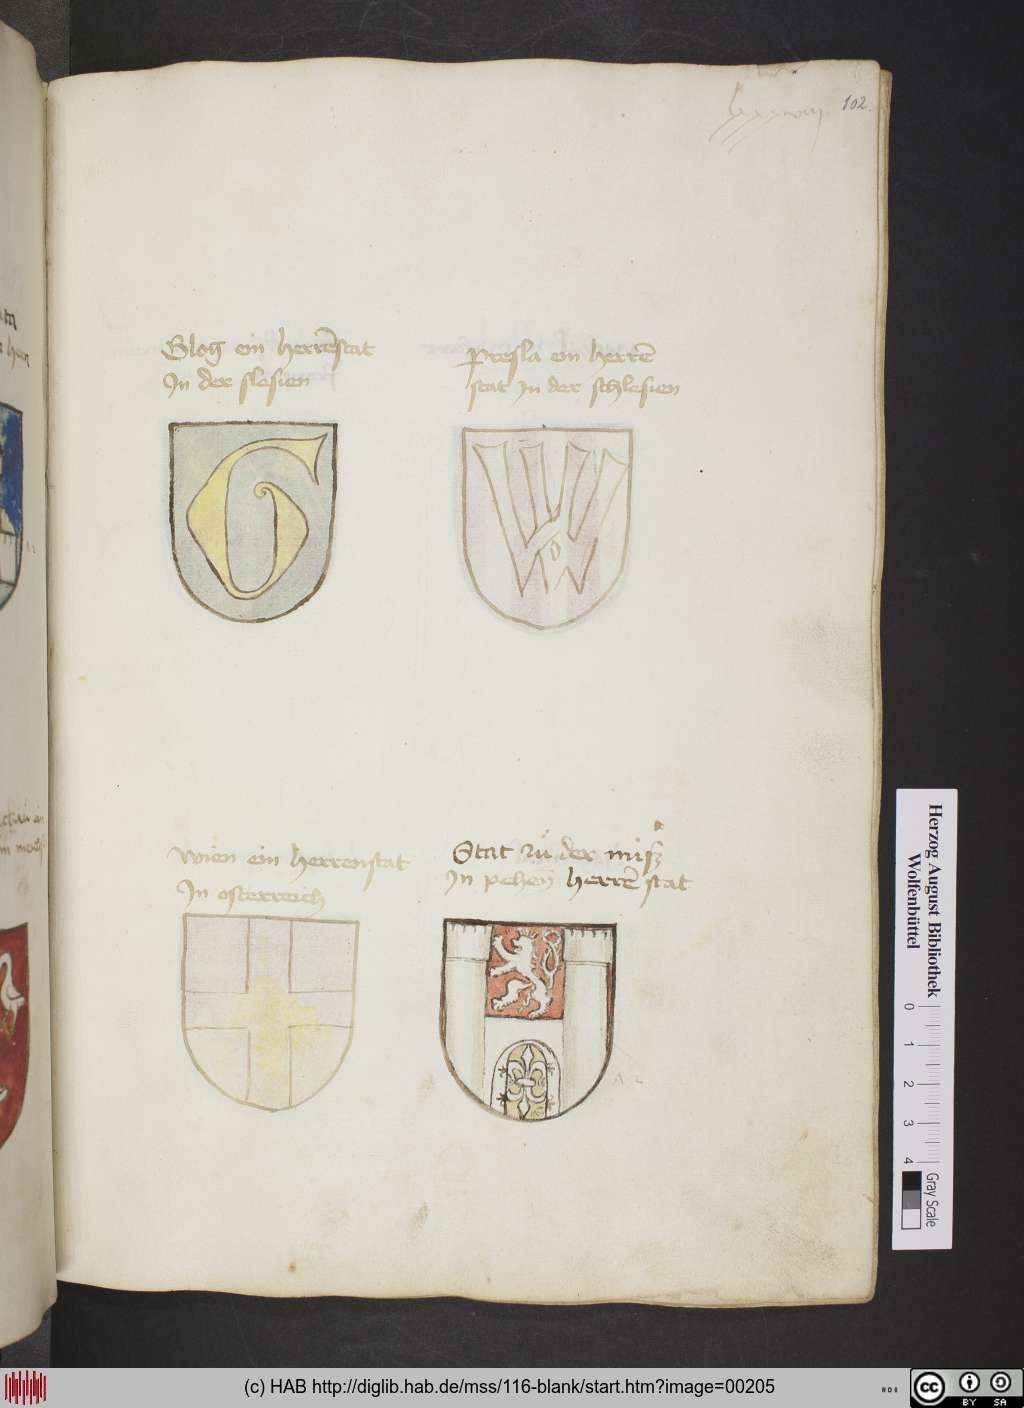 102
Glog ein herrēstat
In der slesien
Presla ein herrē
stat in der schlesien
wien ein herrenstat
In osterreich
Stat zu der miß
In pehen̄ herrē stat
G
W
Herzog August Bibliothek
Wolfenbüttel
0 1 2 3 4
Gray Scale
(c) HAB http://diglib.hab.de/mss/116-blank/start.htm?image=00205
cc BY SA